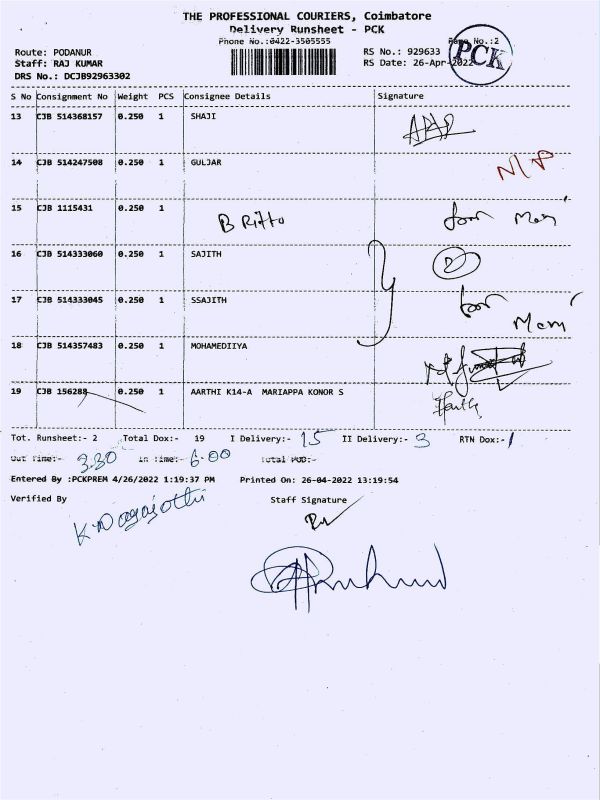 THE PROFESSIONAL COURIERS, Coimbatore
Delivery Runsheet - PCK
Phone No.:0422-3505555
Page No.:2
PCK
Route: PODANUR
RS No.: 929633
Staff: RAJ KUMAR
RS Date: 26-Apr-2022
DRS No.: DCJB92963302
S No Consignment No Weight PCS Consignee Details Signature
13 CJB 514368157 0.250 1 SHAJI
14 CJB 514247508 0.250 1 GULJAR N/P
15 CJB 1115431 0.250 1 B Ritto
16 CJB 514333060 0.250 1 SAJITH
17 CJB 514333045 0.250 1 SSAJITH
18 CJB 514357483 0.250 1 MOHAMEDIIYA
19 CJB 156288 0.250 1 AARTHI K14-A MARIAPPA KONOR S
Tot. Runsheet:- 2 Total Dox:- 19 I Delivery:- 15 II Delivery:- 3 RTN Dox:- 1
Out Time:- 3.30 In Time:- 6.00 Total POD:-
Entered By :PCKPREM 4/26/2022 1:19:37 PM Printed On: 26-04-2022 13:19:54
Verified By Staff Signature